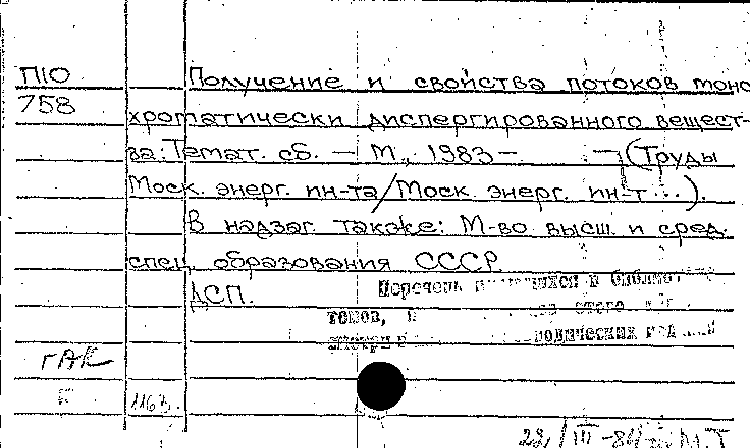 П10 Получение и свойства потоков моно
758 хроматически диспергированного вещест-
ва: Темат. сб. — М., 1983— . — (Труды
Моск. энерг. ин-та/Моск. энерг. ин-т...).
В надзаг. также: М-во высш. и сред.
спец. образования СССР.
ДСП.
Перечень в
томов,
гАК
1163.